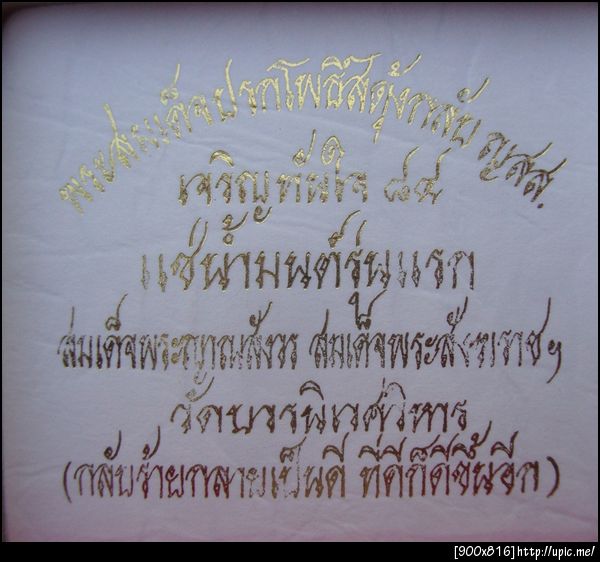 พระสมเด็จปรกโพธิ์สะดุ้งกลับ ญสส.
เจริญทันใจ ๘๔
แช่น้ำมนต์รุ่นแรก
สมเด็จพระญาณสังวร สมเด็จพระสังฆราชฯ
วัดบวรนิเวศวิหาร
(กลับร้ายกลายเป็นดี ที่ดีก็ดีขึ้นอีก)
[900x816]http://upic.me/